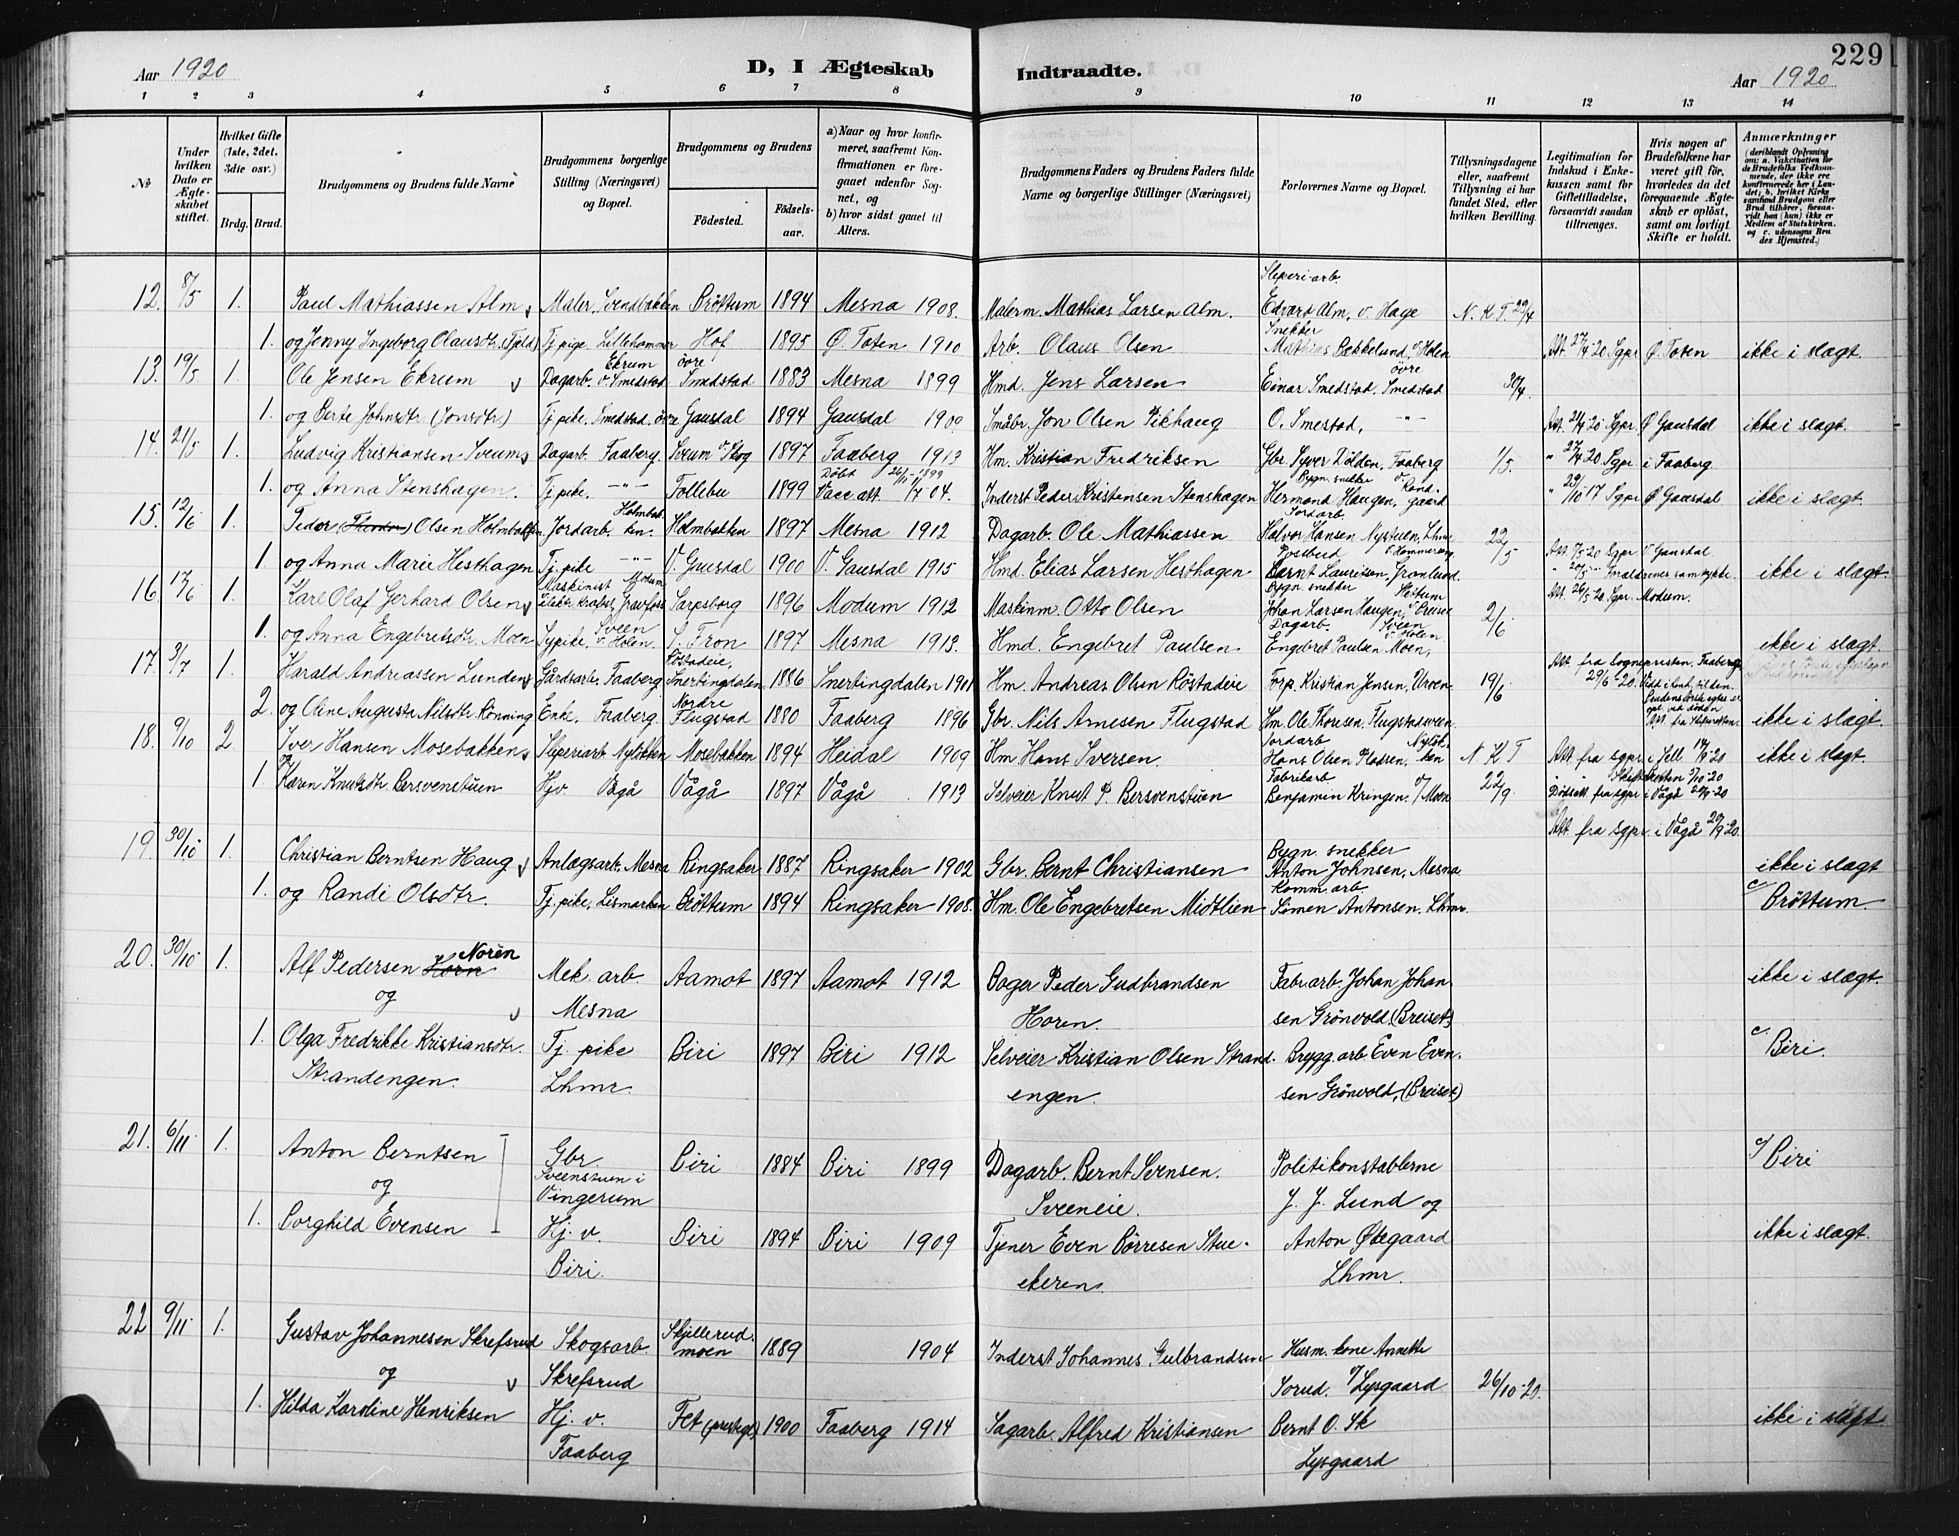 229
Aar 1920
D, I Ægteskab Indtraadte.
Aar 1920
1 2 3 4 5 6 7 8 9 10 11 12 13 14
№
Under hvilken Dato er Ægteskabet stiftet.
Hvilket Gifte (1ste, 2det, 3die osv.)
Brdg. Brud.
Brudgommens og Brudens fulde Navne
Brudgommens borgerlige Stilling (Næringsvei) og Bopæl.
Brudgommens og Brudens
Födested.
Födsels-aar.
a) Naar og hvor konfirmeret, saafremt Konfirmationen er foregaaet udenfor Sognet, og
b) hvor sidst gaaet til Alters.
Brudgommens Faders og Brudens Faders fulde Navne og borgerlige Stillinger (Næringsvei)
Forlovernes Navne og Bopæl.
Tillysningsdagene eller, saafremt Tillysning ei har fundet Sted, efter hvilken Bevilling.
Legitimation for Indskud i Enkekassen samt for Giftetilladelse, forsaavidt saadan tiltrænges.
Hvis nogen af Brudefolkene har været gift før, hvorledes da det foregaaende Ægteskab er oplöst, samt om lovligt Skifte er holdt.
Anmærkninger
(deriblandt Oplysning om: a. Vaccination for de Brudefolks Vedkommende, der ikke ere konfirmerede her i Landet; b. hvilket Kirkesamfund Brudgom eller Brud tilhörer, forsaavidt han (hun) ikke er Medlem af Statskirken. og c. udensogns Brudes Hjemsted.)
12. 8/5 1. Paul Mathiassen Alm Maler, Lundbakken Bröttum 1894 Mesna 1908. Malerm. Mathias Larsen Alm. Sliperiarb. Edvard Alm, v. Hage N. K. T. 29/4
1. og Jenny Ingeborg Olausdtr. (Fjeld) Tj. pige, Lillehammer Hof 1895 Ø. Toten 1910 Arb. Olaus Olsen Snekker Mathias Bækkelund, v. Holen Att. 27/4 20 Sgpr. Ø. Toten ikke i slægt.
13. 19/5 1. Ole Jensen Ekrum Dagarb. Ekrum v. Smedstad övre Smedstad 1883 Mesna 1899 Hmd. Jens Larsen Einar Smedstad, övre Smedstad 30/4.
1. og Berte Johnsdtr. (Jonsdtr.) Tj. pike, Smedstad, övre Gausdal 1894 Gausdal 1909 Småbr. Jon Olsen Pikhaug O. Smestad, " Att. 21/4 20 Sgpr. Ø. Gausdal ikke i slægt.
14. 21/5 1. Ludvig Kristiansen Sveum Dagarb. Faaberg. Sveum v. Skog 1897 Faaberg 1913 Hm. Kristian Fredriksen Gbr. Syver Dölden, Faaberg 1/5. " 27/4 20 Sgpr. i Faaberg
1. og Anna Stenshagen. Tj. pike. " Follebu 1899 Döbt 26/11 1899 Vacc. att. 1/7 04. Inderst Peder Kristensen Stenshagen Bygn. snekker Hermand Haugen, v. Rondgaard " 29/10 17 Sgpr. Ø. Gausdal ikke i slægt.
15. 12/6 1. Peder Olsen Holmbakken Jordarb. Holmbakken. Holmbakken 1897 Mesna 1912 Dagarb. Ole Mathiassen Jordarb. Halvor Hansen Nystuen, Lhmr 22/5
1. og Anna Marie Hesthagen Tj. pike " V. Gausdal 1900 V. Gausdal 1915 Hmd. Elias Larsen Hesthagen Bernt Lauritsen, Grönlund Sgpr. V. Gausdal ikke i slægt.
16. 17/6 1. Karl Olaf Gerhard Olsen Maskinist Modum Gravfoss Sarpsborg 1896 Modum 1912 Maskinm. Otto Olsen Bygn. snekker Johan Larsen Haugen, 2/6 Att. 26/5 20. Sgpr. Modum.
1. og Anna Engebretsdtr. Moen Sypike, Sveen v. Holen. S. Fron 1897 Mesna 1913. Hmd. Engebret Paulsen Dagarb. Engebret Paulsen Moen, Sveen v. Holen ikke i slægt.
17. 3/7 1. Harald Andreassen Lunden Gårdsarb. Faaberg Röstadeie, Snertingdalen 1886 Snertingdalen 1901 Hm. Andreas Olsen Röstadeie Forp. Kristian Jensen, 19/6 Att. fra Sognepresten, Faaberg 29/6-20.
2. og Oline Augusta Nilsdtr. Rönning Enke. Faaberg. Nordre Flugstad 1880 Faaberg 1896 Gbr. Nils Arnesen Flugstad Hm. Ole Thorsen, Flugstadsveen. ikke i slægt.
18. 9/10 2. Iver Hansen Mosebakken Sliperiarb. Nylökken Mosebakken 1894 Heidal 1909 Hm Hans Iversen. Jordarb Hans Olsen Pladsen, Nylökken N K T Att. fra sgpr. i Sell 14/9-20 ikke i slægt.
1 og Karen Knutsdtr. Bersvenstuen Hjv. Vågå Vågå 1897 Vågå 1913 Selveier Knut P. Bersvenstuen Fabrikarb Benjamin Kringen. v/ Moen 22/9. Dödsatt. fra sgpr. i Vågå 20/9-20
Att. fra sgpr. i Vågå 20/9-20.
19. 30/10 1. Christian Berntsen Haug Anlægsarb. Mesna Ringsaker 1887 Ringsaker 1902 Gbr. Bernt Christiansen Bygn. snekker Anton Johnsen, Mesna ikke i slægt
1. og Randi Olsdtr. Tj. pike, Lismarken Bröttum 1894 Ringsaker 1908. Hm. Ole Engebretsen Midtlien Komm. arb. Simen Antonsen, Lhmr. c/ Bröttum.
20. 30/10 1. Alf Pedersen Horn Norèn Mek. arb. Mesna Aamot 1897 Aamot 1912 Bager Peder Gudbrandsen Horen. Fabr. arb. Johan Johansen Grönvold, (Breiset) ikke i slægt.
og
1. Olga Fredrikke Kristiansdtr. Strandengen. Tj. pike Lhmr. Biri 1897 Biri 1912 Selveier Kristian Olsen Strandengen. Brygg. arb. Even Evensen Grönvold, (Breiset) c. Biri.
21. 6/11 1. Anton Berntsen Gbr. Sveenstuen i Vingerum Biri 1884 Biri 1899 Dagarb. Bernt Svensen. Sveeneie. Politikonstablerne J. J. Lund og c/ Biri
og
1. Borghild Evensen Hj. v. Biri. Biri 1894 Biri 1909 Tjener Even Börresen Stuekeren. Anton Økegaard Lhmr. ikke i slægt.
22 9/11 1. Gustav Johannesen Skrefsrud Skogsarb. Skrefsrud Skjellerudmoen 1889 1904 Inderst Johannes Gulbrandsen Husm. kone Annette Sorud. v/ Lysgaard 26/10-20.
og
1. Hilda Karoline Henriksen Hj. v. Faaberg Fet (prestegj.) 1900 Faaberg 1914 Sagarb. Alfred Kristiansen Bernt O. Sk Lysgaard ikke i slægt